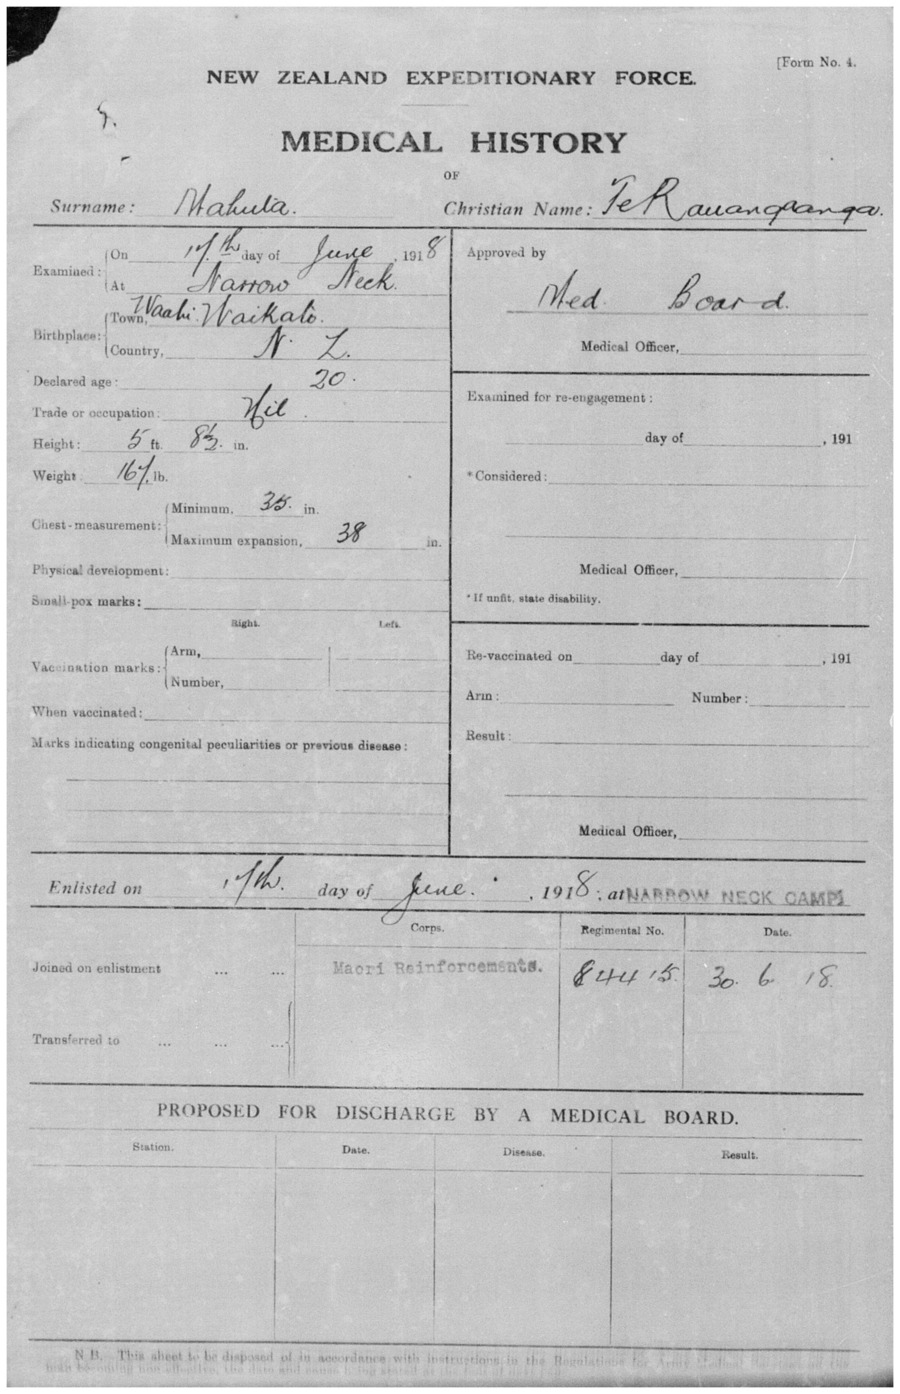 [Form No. 4.
NEW ZEALAND EXPEDITIONARY FORCE.
MEDICAL HISTORY
OF
Surname: Mahuta. Christian Name: Te Rauangaanga.
Examined: On 17th day of June, 1918
At Narrow Neck.
Birthplace: Town, Waahi. Waikato.
Country, N. Z.
Declared age: 20.
Trade or occupation: Nil.
Height: 5 ft. 8½ in.
Weight: 167 lb.
Chest-measurement: Minimum, 35. in.
Maximum expansion, 38 in.
Physical development:
Small-pox marks:
Right. Left.
Vaccination marks: Arm,
Number,
When vaccinated:
Marks indicating congenital peculiarities or previous disease:
Approved by
Med. Board.
Medical Officer,
Examined for re-engagement:
day of , 191
*Considered:
Medical Officer,
*If unfit, state disability.
Re-vaccinated on day of , 191
Arm: Number:
Result:
Medical Officer,
Enlisted on 17th. day of June. , 1918; at NARROW NECK CAMP
Corps. Regimental No. Date.
Joined on enlistment ... ... Maori Reinforcements. 84415. 30. 6. 18.
Transferred to ... ... ...
PROPOSED FOR DISCHARGE BY A MEDICAL BOARD.
Station. Date. Disease. Result.
N.B. This sheet to be disposed of in accordance with instructions in the Regulations for Army Medical